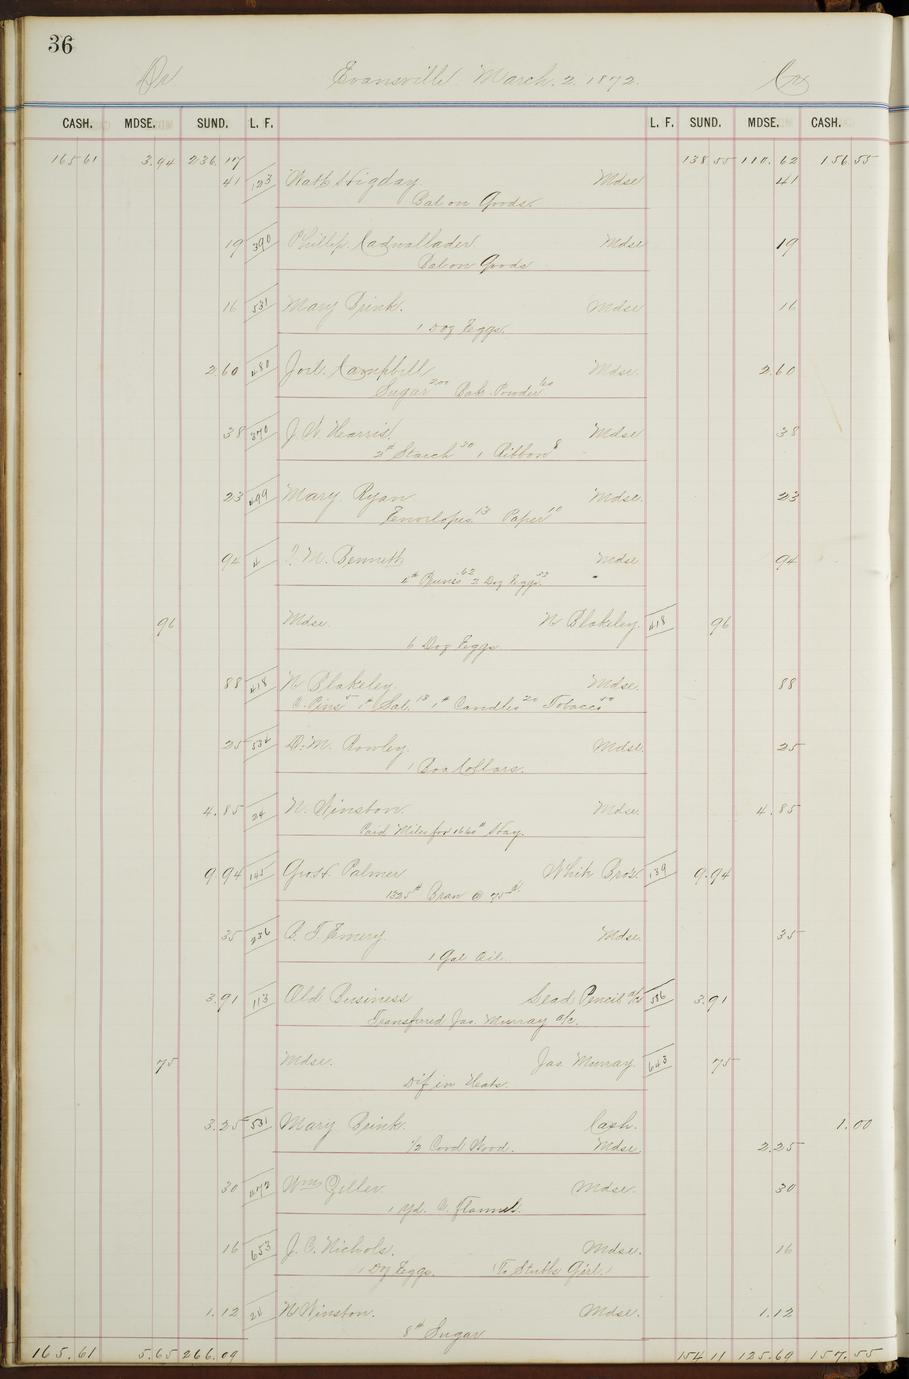 36
Dr Evansville March. 2. 1872. Cr
CASH. MDSE. SUND. L. F. L. F. SUND. MDSE. CASH.
165 61 3.94 236.17 138 55 110.62 156 55
41 123 Higday Mdse 41
Bal on Goods.
19 390 Phillip Cadwallader Mdse 19
Bal on Goods
16 531 Mary Brink. Mdse 16
1 Doz Eggs.
2.60 480 Joel. Campbell Mdse. 2.60
Sugar 2.00 Bak. Powder 60
38 370 J. W. Harris. Mdse 38
2# Starch 30 1 Ribbon 8
23 499 Mary Ryan Mdse. 23
Envelopes 13 Paper 10
94 4 M. Bennett Mdse 94
4# 62 2 Doz Eggs. 32
96 Mdse. N Blakeley. 418 96
6 Doz Eggs
88 418 N Blakeley. Mdse. 88
C. Pins 5 1# Sal. 13 1# Candles 20 Tobacco 50
25 534 D. M. Rowley. Mdse. 25
1 Box Collars.
4.85 24 N. Winston. Mdse. 4.85
Paid Miles for 1660# Hay.
9 94 145 Palmer Bros. 139 9.94
1325# Bran @ 75 ct.
35 236 C. T. Emery. Mdse. 35
1 Gal Oil.
3.91 113 Old Business Lead Pencil a/c 586 3.91
Transferred Jas. Murray a/c.
75 Mdse. Jas Murray. 643 75
Dif in
3.25 531 Mary Brink. Cash. 1.00
1/2 Cord Wood. Mdse. 2.25
30 472 Wm Zeller Mdse. 30
1 Yd. C. Flannel.
16 653 J. C. Nichols. Mdse. 16
1 Doz Eggs. (To Stubbs Girl.)
1.12 24 N Winston. Mdse. 1.12
8# Sugar
165.61 5.65 266.09 154 11 125.69 157.55